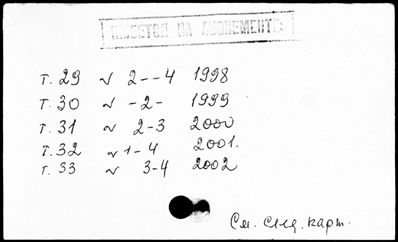 ИМЕЕТСЯ НА АБОНЕМЕНТЕ
т. 29 № 2--4 1998
т. 30 № -2- 1999
т. 31 № 2-3 2000
т. 32 № 1-4 2001.
т. 33 № 3-4 2002
См. след. карт.